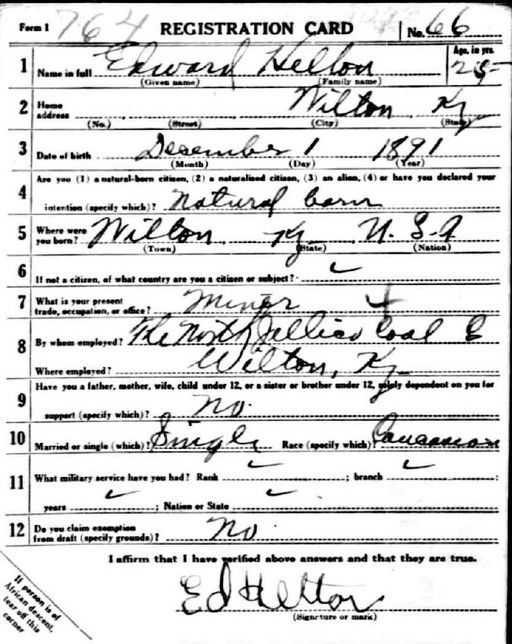 Form 1 764 REGISTRATION CARD No. 66
1 Name in full Edward Helton Age, in yrs. 25
(Given name) (Family name)
2 Home address Wilton Ky
(No.) (Street) (City) (State)
3 Date of birth December 1 1891
(Month) (Day) (Year)
4 Are you (1) a natural-born citizen, (2) a naturalized citizen, (3) an alien, (4) or have you declared your
intention (specify which)? Natural born
5 Where were you born? Wilton Ky U.S.A
(Town) (State) (Nation)
6 If not a citizen, of what country are you a citizen or subject? ✓
7 What is your present trade, occupation, or office? Miner 4
8 By whom employed? The North Jellico Coal C
Where employed? Wilton, Ky
9 Have you a father, mother, wife, child under 12, or a sister or brother under 12, solely dependent on you for
support (specify which)? No.
10 Married or single (which)? Single Race (specify which)? Caucasian
11 What military service have you had? Rank ✓ ; branch ✓ ;
years ✓ ; Nation or State ✓
12 Do you claim exemption from draft (specify grounds)? No
I affirm that I have verified above answers and that they are true.
Ed Helton
(Signature or mark)
If person is of
African descent,
tear off this
corner